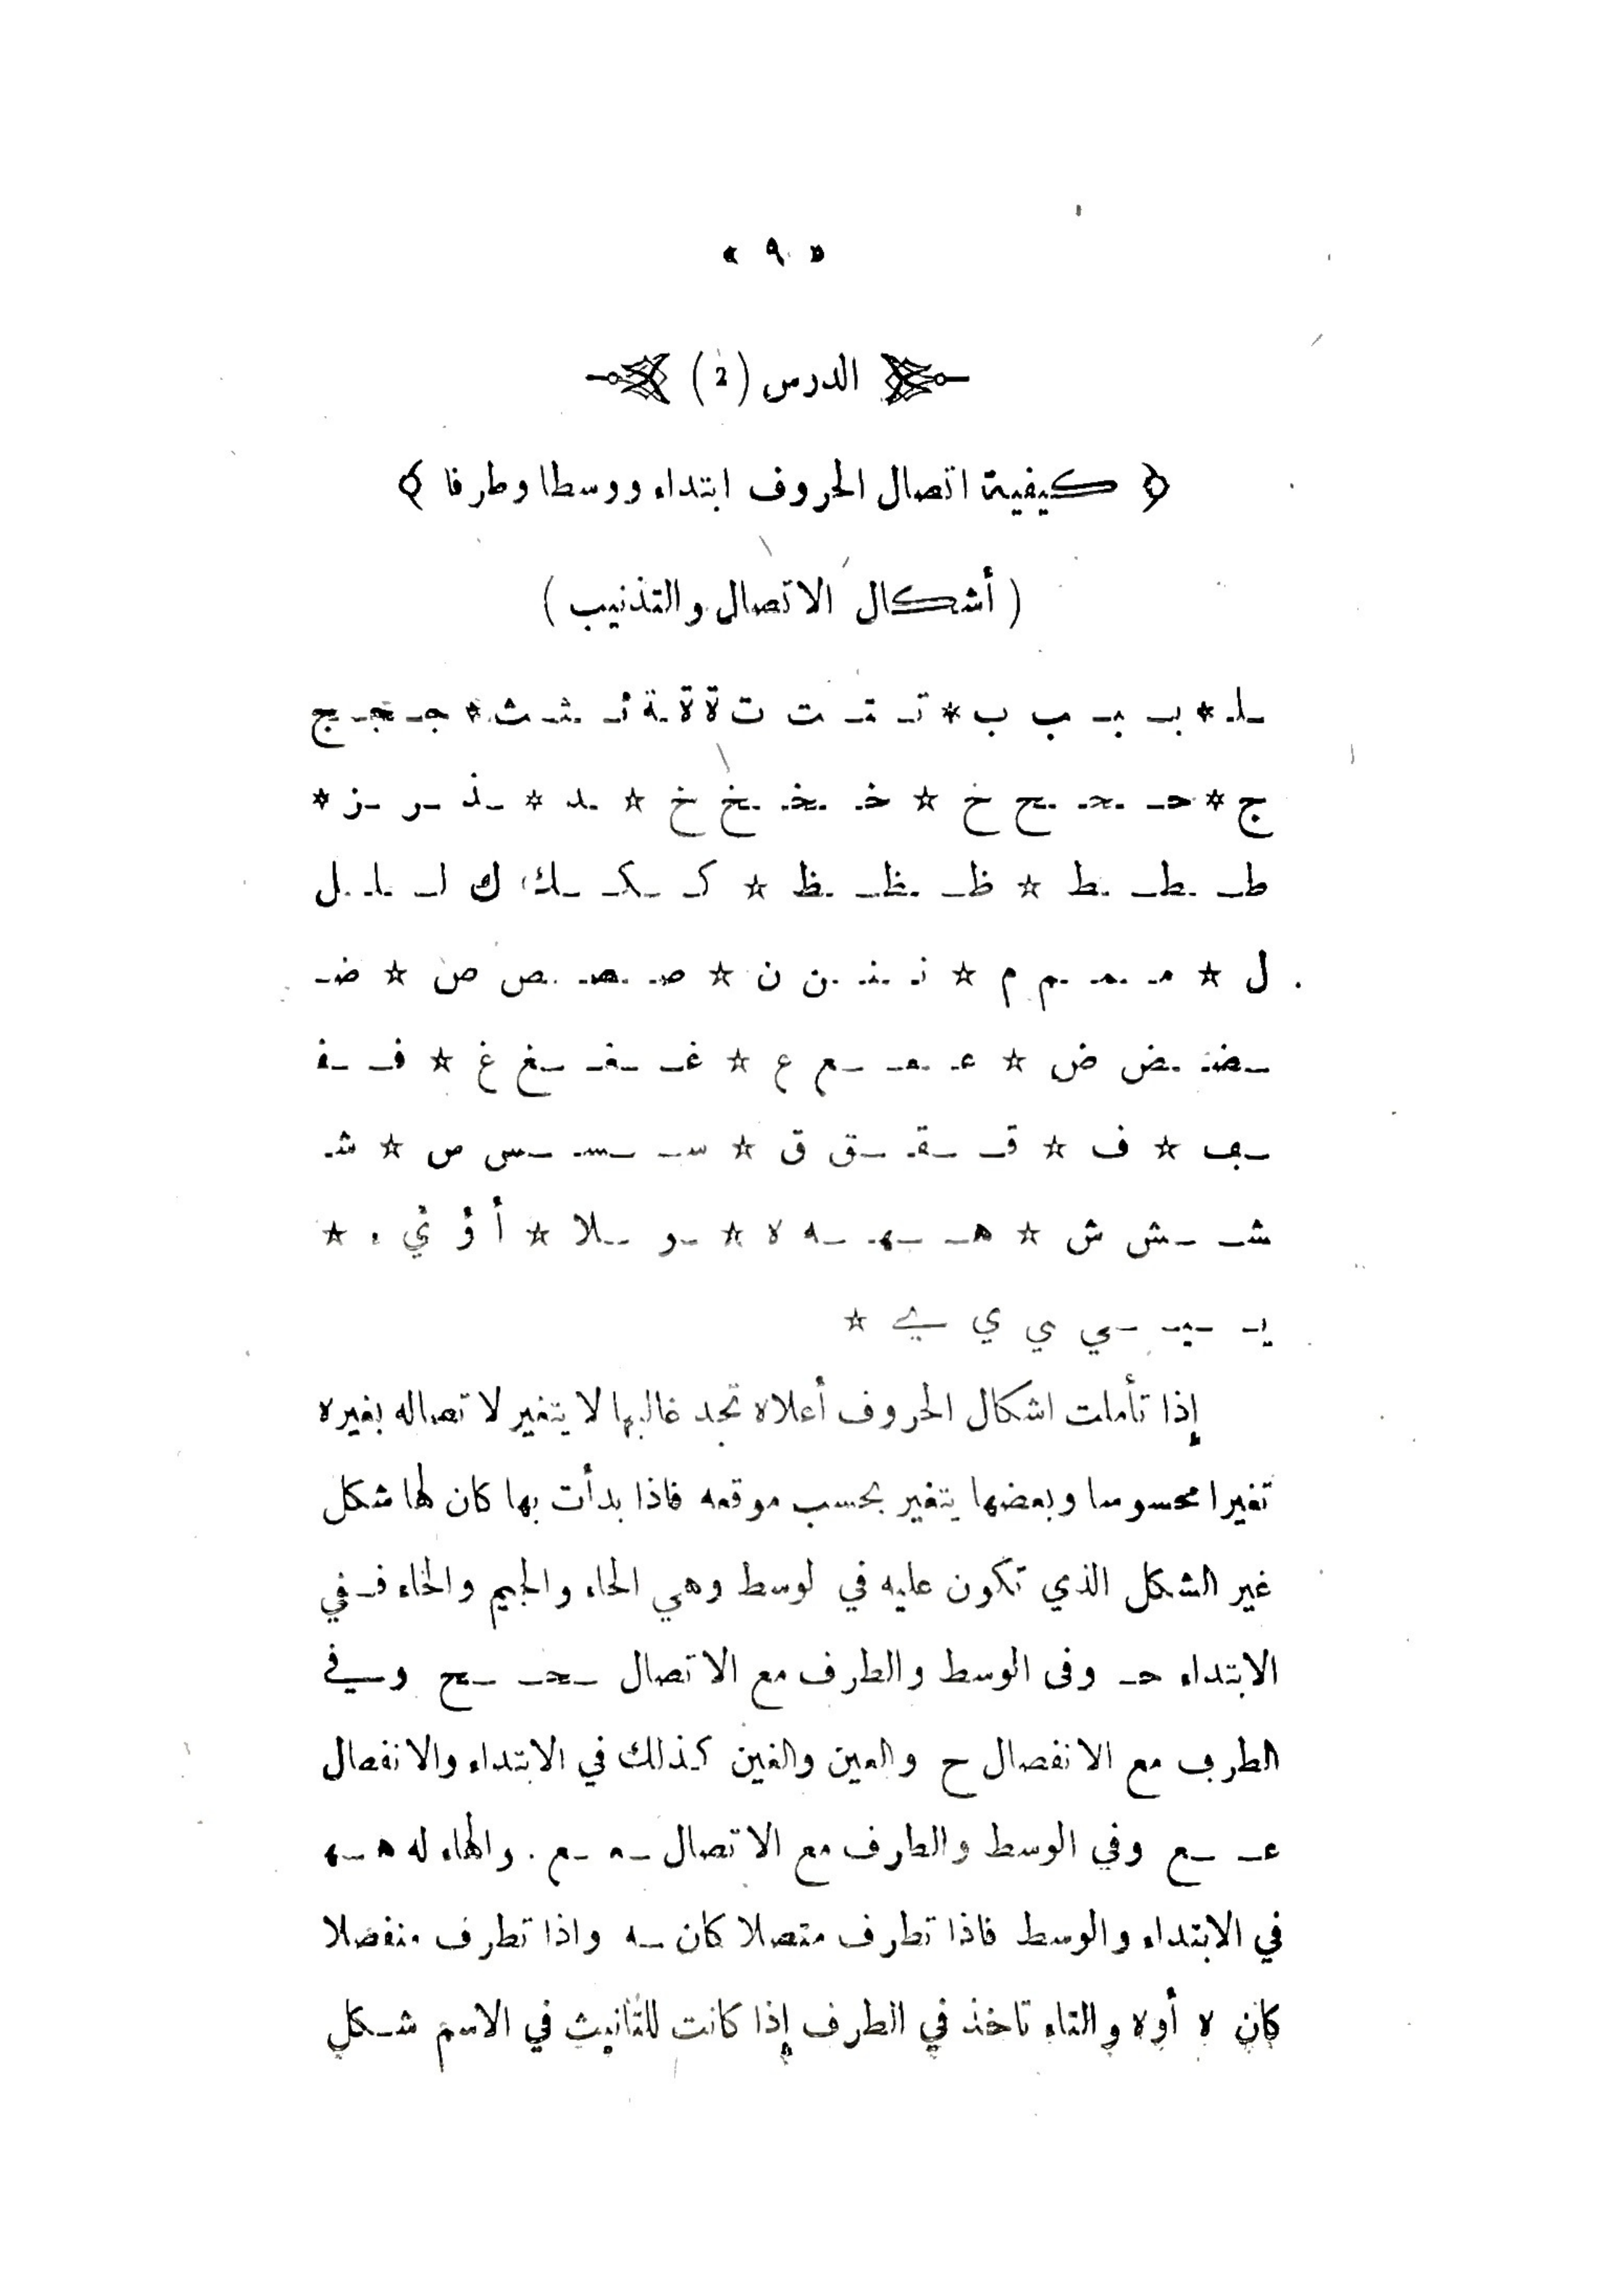 « ٩ »
الدرس (2)
﴿ كيفية اتصال الحروف ابتداء ووسطا وطرفا ﴾
( أشكال الاتصال والتذنيب )
ـلـ * بـ ـبـ ـب ب * تـ ـتـ ـت ت ة ة ـة ثـ ـثـ ـث * جـ ـجـ ـج
ج * حـ ـحـ ـح خ * خـ ـخـ ـخ خ * ـد * ـذ ـر ـز *
طـ ـطـ ـط * ظـ ـظـ ـظ * كـ ـكـ ـك ك لـ ـلـ ـل
ل * مـ ـمـ ـم م * نـ ـنـ ـن ن * صـ ـصـ ـص ص * ضـ
ـضـ ـض ض * عـ ـعـ ـع ع * غـ ـغـ ـغ غ * فـ ـفـ
ـف ف * قـ ـقـ ـق ق * سـ ـسـ ـس س * شـ
شـ ـش ش * هـ ـهـ ـه ه * ـو ـلا * أ ؤ ئ ء *
يـ ـيـ ـي ي ي ے *
إذا تأملت اشكال الحروف أعلاه تجد غالبها لا يتغير لاتصاله بغيره
تغيرا محسوسا وبعضها يتغير بحسب موقعه فاذا بدأت بها كان لها شكل
غير الشكل الذي تكون عليه في لوسط وهي الحاء والجيم والخاء فـفي
الابتداء حـ وفى الوسط والطرف مع الاتصال ـحـ ـح وفي
الطرف مع الانفصال ح والعين والغين كذلك في الابتداء والانفصال
عـ ـع وفي الوسط والطرف مع الاتصال ـعـ ـع . والهاء له هـ ـهـ
في الابتداء والوسط فاذا تطرف متصلا كان ـه واذا تطرف منفصلا
كان ه أوه والتاء تاخذ في الطرف إذا كانت للتانيث في الاسم شـكل